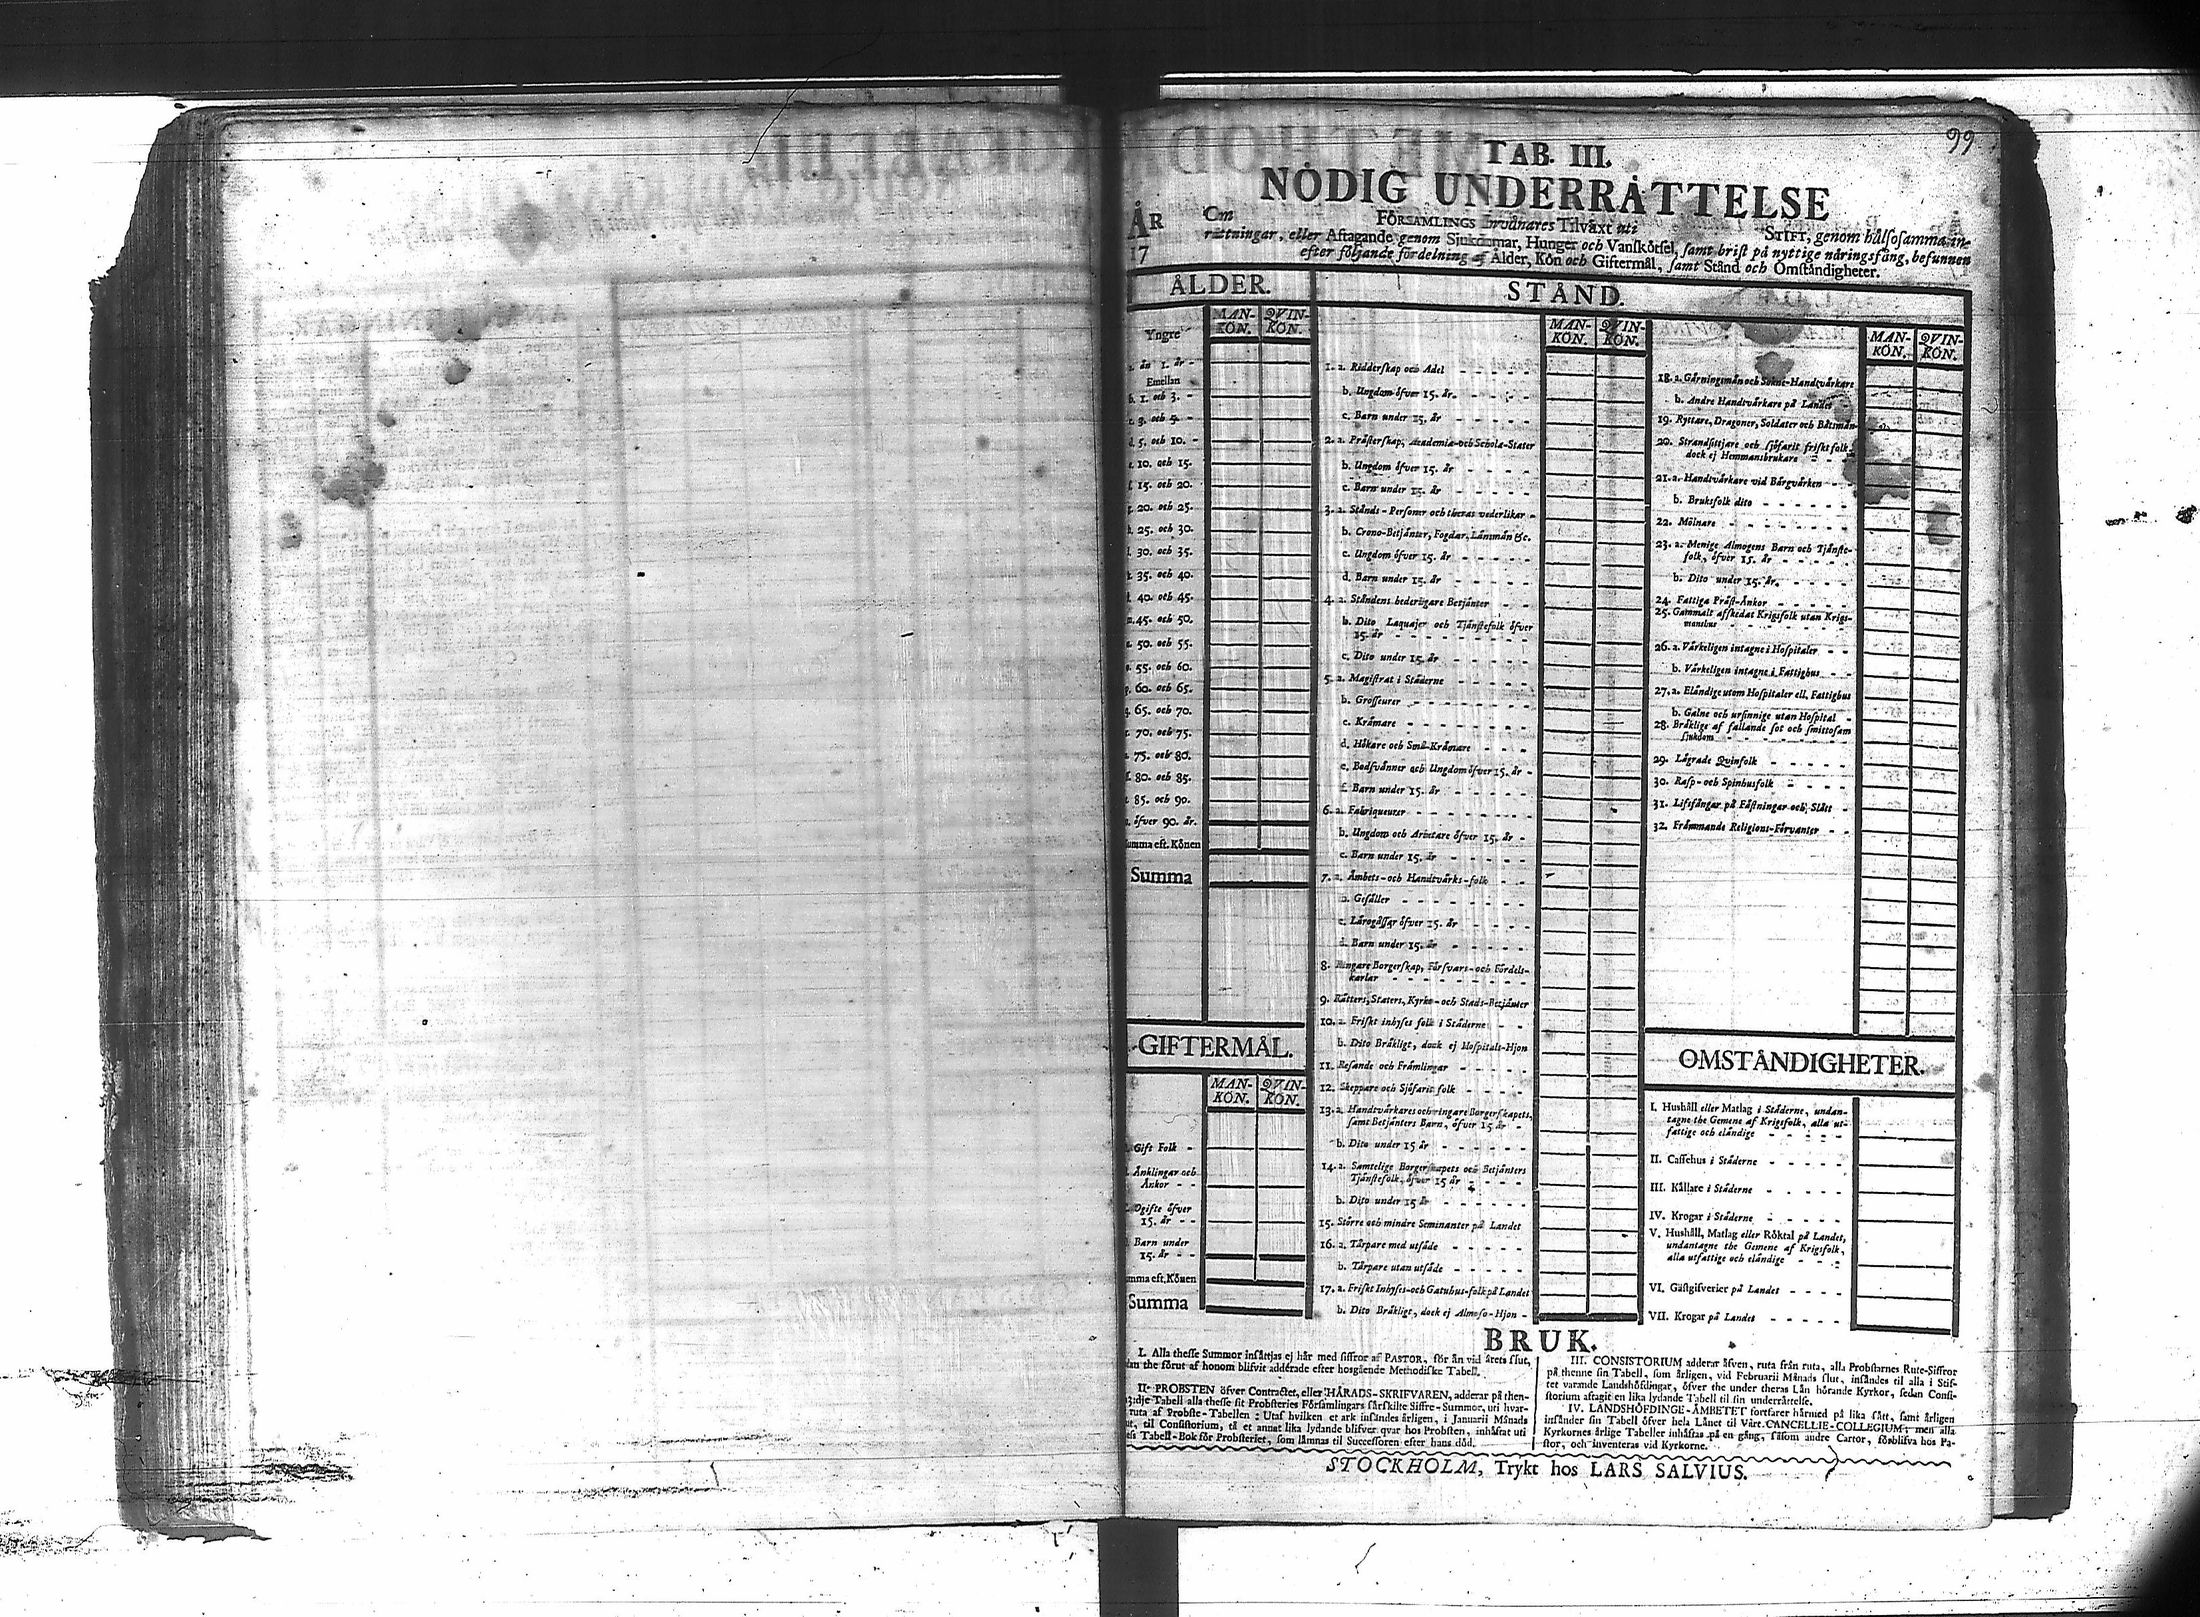 99
TAB. III.
NÖDIG UNDERRÄTTELSE
ÅR
17
Om FÖRSAMLINGS Invånares Tilväxt uti STIFT, genom hälsosamma in-
rättningar, eller Aftagande genom Sjukdomar, Hunger och Vanskötsel, samt brist på nyttige näringsfång, befunnen
efter följande fördelning af Ålder, Kön och Giftermål, samt Stånd och Omständigheter.
ÅLDER.
MAN-KÖN. QVIN-KÖN.
Yngre
än 1. år -
Emellan
b. 1. och 3. -
c. 3. och 5. -
d. 5. och 10. -
e. 10. och 15.
f. 15. och 20.
g. 20. och 25.
h. 25. och 30.
30. och 35.
35. och 40.
40. och 45.
45. och 50.
50. och 55.
55. och 60.
60. och 65.
65. och 70.
70. och 75.
75. och 80.
80. och 85.
85. och 90.
öfver 90. år.
Summa eft. Könen
Summa
GIFTERMÅL.
MAN-KÖN. QVIN-KÖN.
Gift Folk -
Änklingar och
Änkor - -
Ogifte öfver
15. år - -
Barn under
15. år - -
Summa eft. Könen
Summa
STÅND.
MAN-KÖN. QVIN-KÖN.
1. a. Ridderskap och Adel
b. Ungdom öfver 15. år.
c. Barn under 15. år
2. a. Prästerskap, Academiæ- och Schola-Stater
b. Ungdom öfver 15. år
c. Barn under 15. år
3. a. Stånds-Personer och theras vederlikar -
b. Crono-Betjänter, Fogdar, Länsmän &c.
c. Ungdom öfver 15. år
d. Barn under 15. år
4. a. Ståndens hederligare Betjänter
b. Dito Laquajer och Tjänstefolk öfver
15. år
c. Dito under 15. år
5. a. Magistrat i Städerne
b. Grosseurer
c. Krämare
d. Hökare och Små-Krämare
e. Bodsvänner och Ungdom öfver 15. år -
f. Barn under 15. år
6. a. Fabriqueurer
b. Ungdom och Arbetare öfver 15. år -
c. Barn under 15. år
7. a. Ämbets- och Handtvärks-folk
b. Gesäller
c. Lärogåssar öfver 15. år
d. Barn under 15. år
8. Ringare Borgerskap, Försvars- och Fördels-
karlar
9. Rätters, Staters, Kyrko- och Stads-Betjänter
10. a. Friskt inhyses folk i Städerne
b. Dito Bräkligt, dock ej Hospitals-Hjon
11. Resande och Främlingar
12. Skeppare och Sjöfarit folk
13. a. Handtvärkares och ringare Borgerskapets,
samt Betjänters Barn, öfver 15 år -
b. Dito under 15 år
14. a. Samtelige Borgerskapets och Betjänters
Tjänstefolk, öfver 15 år
b. Dito under 15 år
15. Större och mindre Seminanter på Landet
16. a. Tårpare med utsäde
b. Tårpare utan utsäde
17. a. Friskt Inhyses- och Gatuhus-folk på Landet
b. Dito Bräkligt, dock ej Almoso-Hjon -
MAN-KÖN. QVIN-KÖN.
18. a. Gärningsmän och Sokne-Handtvärkare
b. Andre Handtvärkare på Landet
19. Ryttare, Dragoner, Soldater och Båtsmän
20. Strandsittjare och sjöfarit friskt folk,
dock ej Hemmansbrukare
21. a. Handtvärkare vid Bärgvärken
b. Bruksfolk dito
22. Mölnare
23. a. Menige Almogens Barn och Tjänste-
folk, öfver 15. år
b. Dito under 15. år.
24. Fattiga Präst-Änkor
25. Gammalt afskedat Krigsfolk utan Krigs-
manshus
26. a. Värkeligen intagne i Hospitaler
b. Värkeligen intagne i Fattighus
27. a. Eländige utom Hospitaler ell. Fattighus
b. Galne och ursinnige utan Hospital -
28. Bräklige af fallande sot och smittosam
sjukdom
29. Lägrade Qvinfolk
30. Rasp- och Spinhusfolk
31. Lifsfångar på Fästningar och Slått -
32. Främmande Religions-Förvanter
OMSTÄNDIGHETER.
I. Hushåll eller Matlag i Städerne, undan-
tagne the Gemene af Krigsfolk, alla ut-
fattige och eländige
II. Caffehus i Städerne
III. Källare i Städerne
IV. Krogar i Städerne
V. Hushåll, Matlag eller Röktal på Landet,
undantagne the Gemene af Krigsfolk,
alla utfattige och eländige
VI. Gästgifverier på Landet
VII. Krogar på Landet
BRUK.
I. Alla thesse Summor insättjas ej här med siffror af PASTOR, för än vid årets slut,
sedan the förut af honom blifvit adderade efter hosgående Methodiske Tabell.
II. PROBSTEN öfver Contractet, eller HÄRADS-SKRIFVAREN, adderar på then-
Tabell alla thesse sit Probsteries Församlingars särskilte Siffre-Summor, uti hvar-
ruta af Probste-Tabellen: Utaf hvilken et ark insändes årligen, i Januarii Månads
slut, til Consistorium, tå et annat lika lydande blifver qvar hos Probsten, inhäftat uti
Tabell-Bok för Probsteriet, som lämnas til Successoren efter hans död.
III. CONSISTORIUM adderar äfven, ruta från ruta, alla Probstarnes Rute-Siffror
på thenne sin Tabell, som årligen, vid Februarii Månads slut, insändes til alla i Stif-
tet varande Landshöfdingar, öfver the under theras Län hörande Kyrkor, sedan Consi-
storium aftagit en lika lydande Tabell til sin underrättelse.
IV. LANDSHÖFDINGE-ÄMBETET fortfarer härmed på lika sätt, samt årligen
insänder sin Tabell öfver hela Länet til Vårt CANCELLIE-COLLEGIUM; men alla
Kyrkornes årlige Tabeller inhäftas på en gång, såsom andre Cartor, förblifva hos Pa-
stor, och inventeras vid Kyrkorne.
STOCKHOLM, Trykt hos LARS SALVIUS.